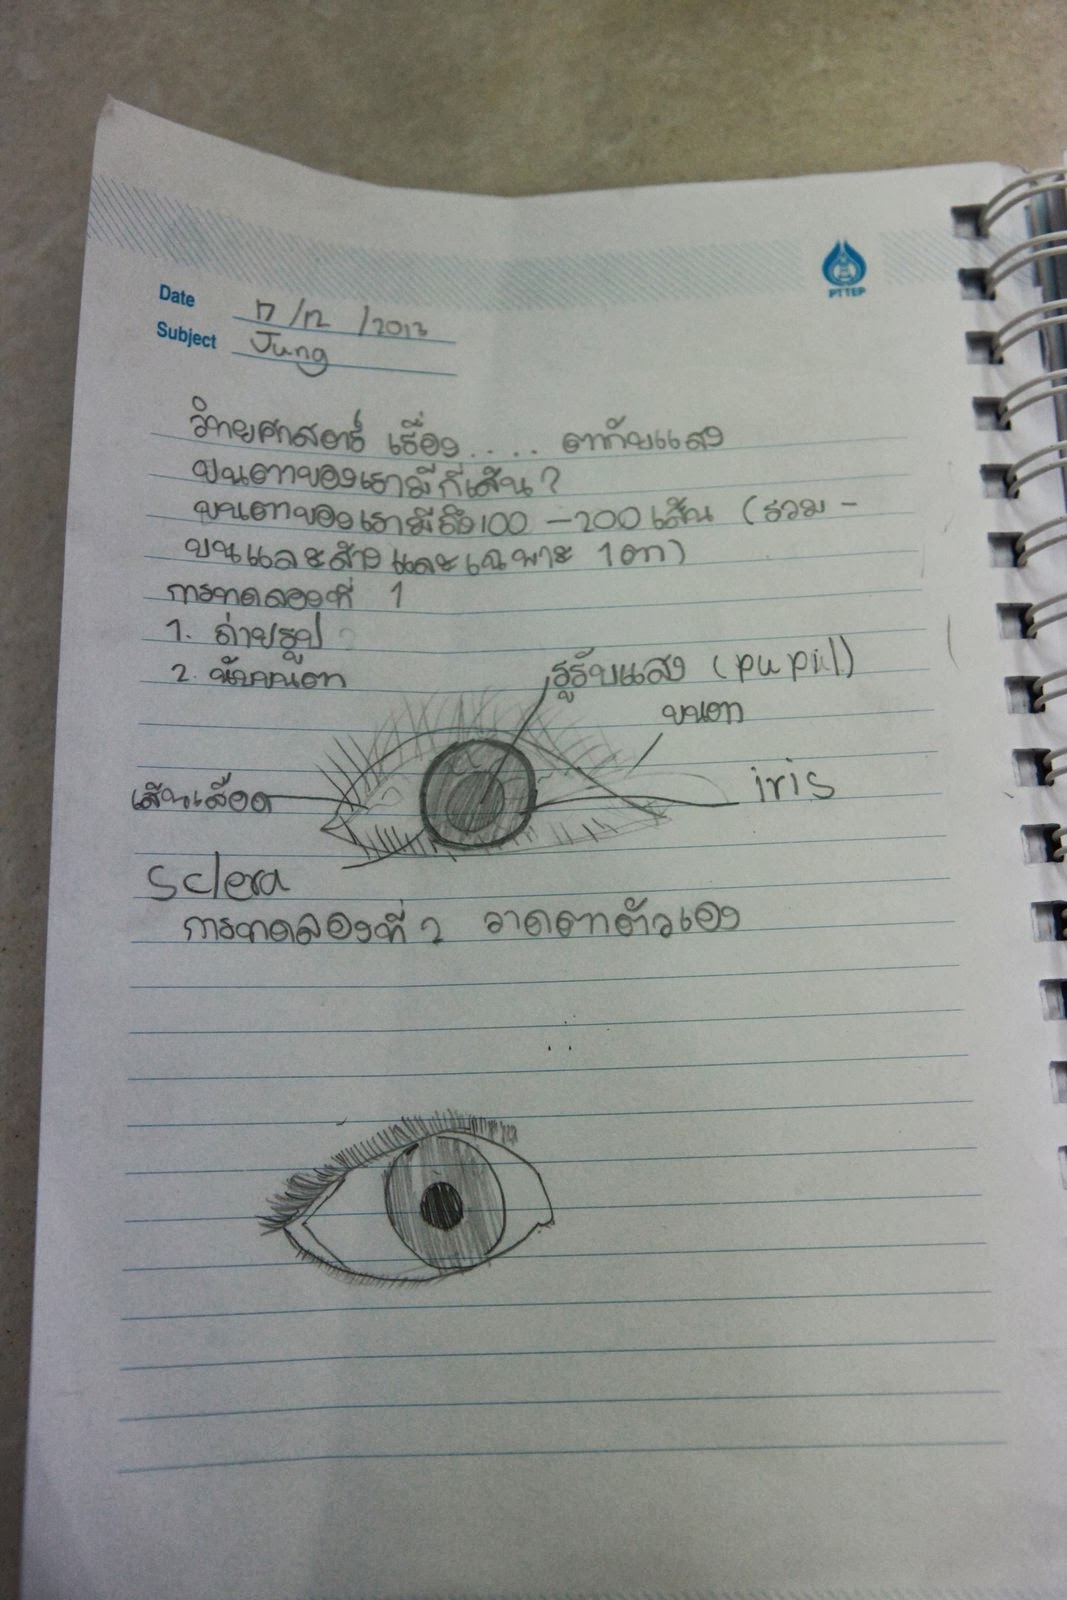 PTTEP
Date 17/12/2013
Subject Jung
วิทยาศาสตร์ เรื่อง.... ตากับแสง
ขนตาของเรามีกี่เส้น?
ขนตาของเรามีถึง100-200เส้น (รวม-
บนและล่างและเฉพาะ 1ตา)
การทดลองที่ 1
1. ถ่ายรูป
2. นับขนตา
รูรับแสง (pupil)
ขนตา
เส้นเลือด
iris
Sclera
การทดลองที่ 2 วาดตาตัวเอง